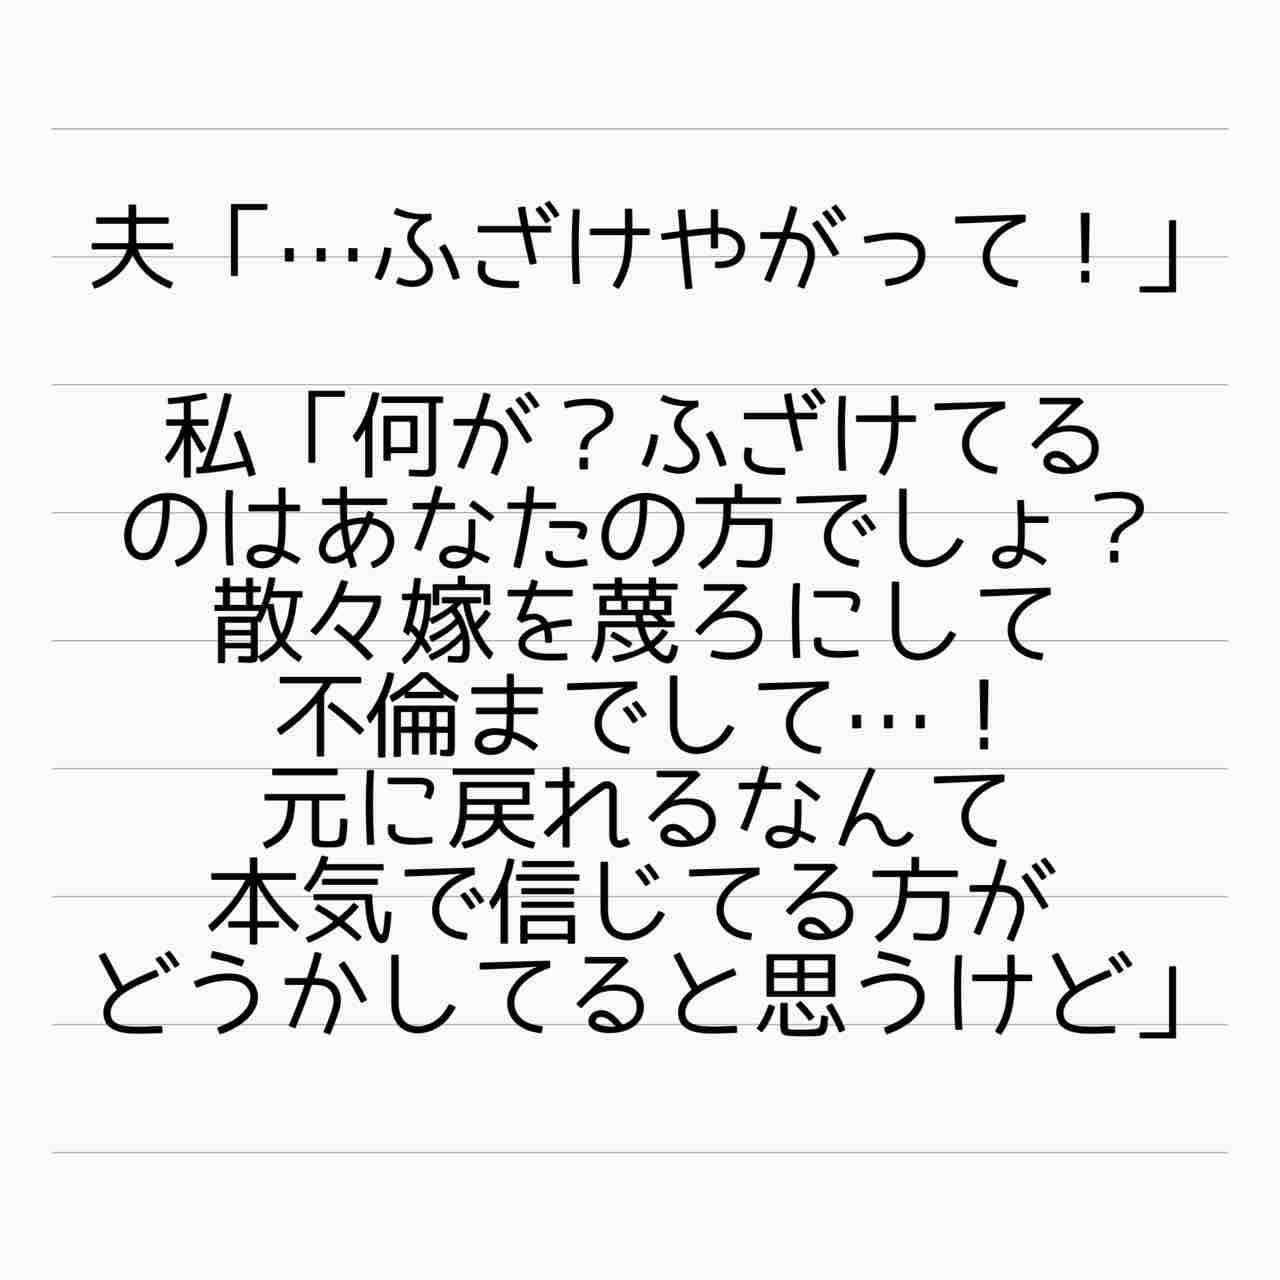 夫「…ふざけやがって！」
私「何が？ふざけてる
のはあなたの方でしょ？
散々嫁を蔑ろにして
不倫までして…！
元に戻れるなんて
本気で信じてる方が
どうかしてると思うけど」